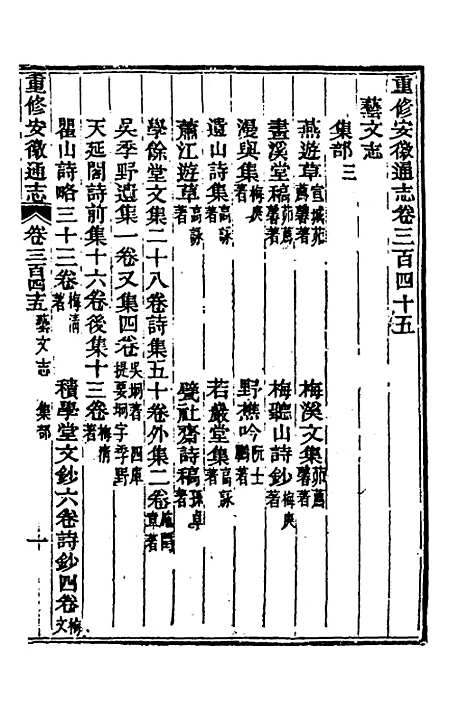 重修安徽通志卷三百四十五
藝文志
集部三
燕遊草宣城茆薦馨著 梅溪文集茆薦馨著
畫溪堂稿茆薦馨著 梅聽山詩鈔梅庚著
漫與集梅庚著 野樵吟阮士鵬著
遺山詩集高詠著 若巖堂集高詠著
蕭江遊草高詠著 甓社齋詩稿孫卓著
學餘堂文集二十八卷詩集五十卷外集二卷施閏章著
吳季野遺集一卷又集四卷吳坰著四庫提要坰字季野
天延閣詩前集十六卷後集十三卷梅清著
瞿山詩略三十三卷梅清著 積學堂文鈔六卷詩鈔四卷梅文
重修安徽通志 卷三百四五 藝文志 集部 一